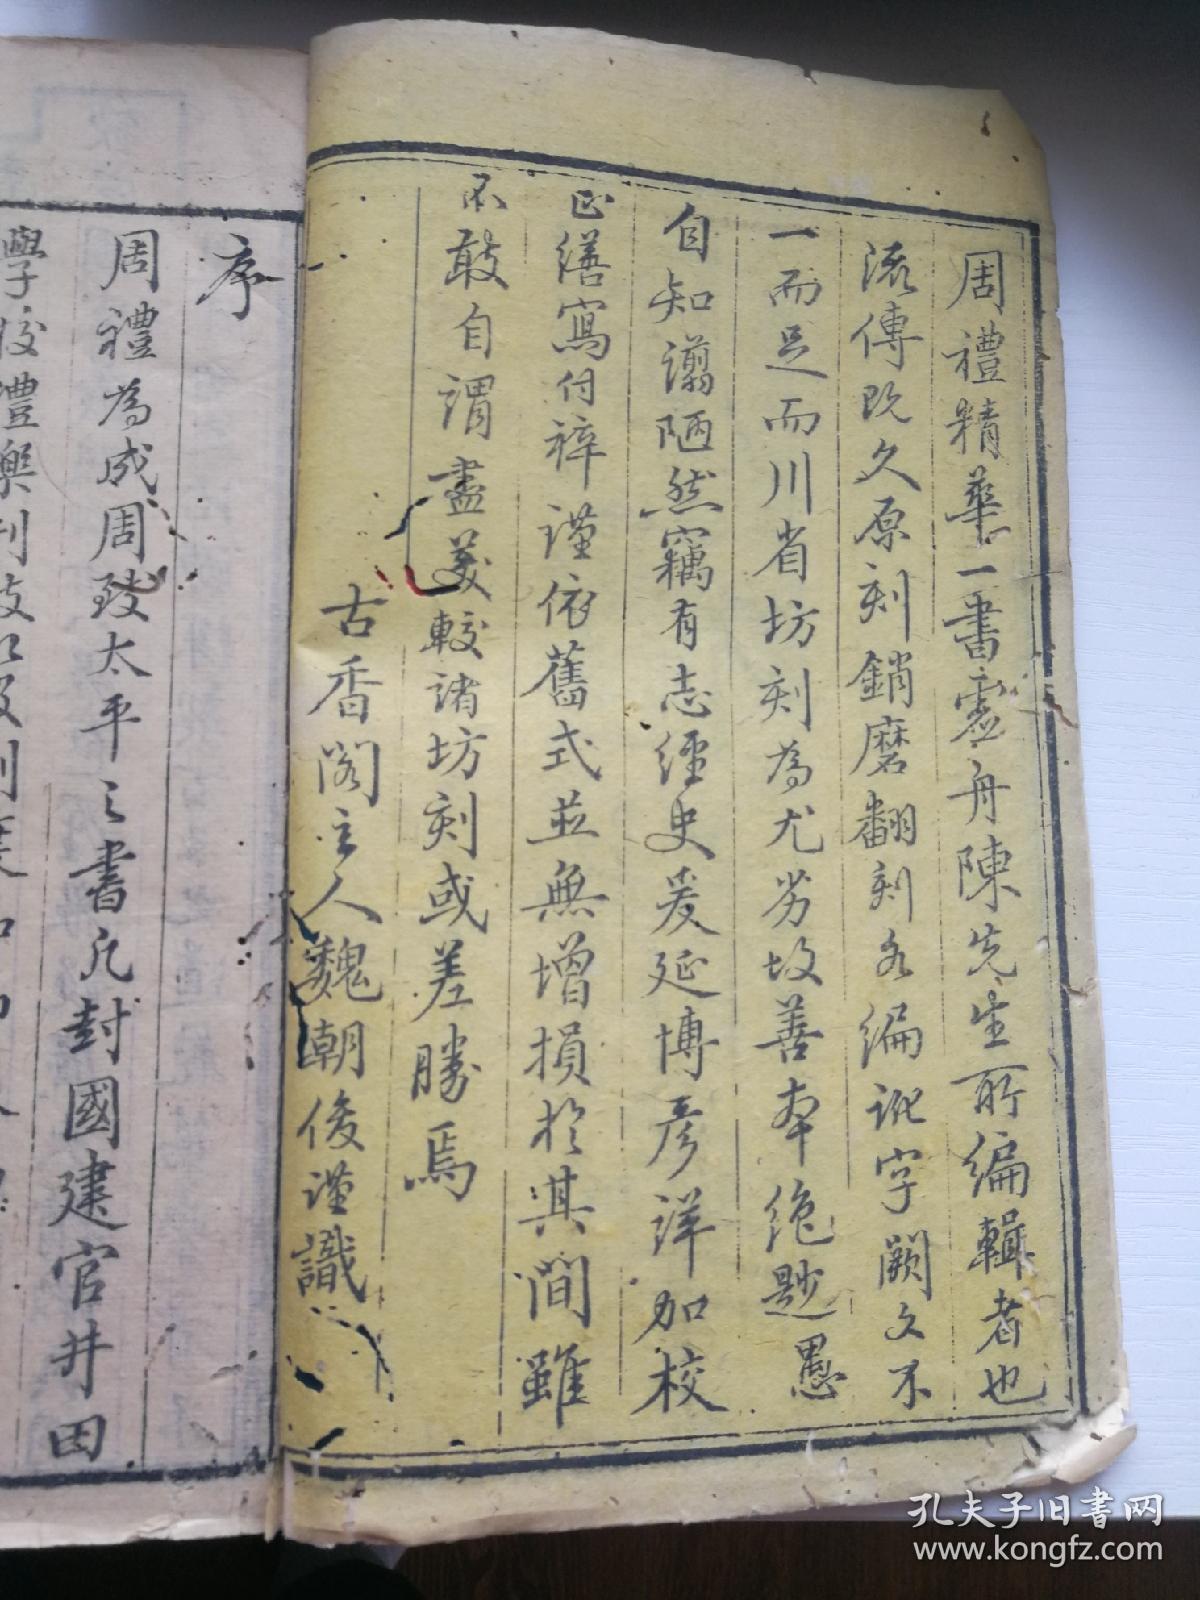 周禮精華一書虛舟陳先生所編輯者也
流傳既久原刻銷磨翻刻各編訛字闕文不
一而足而川省坊刻為尤劣坊善本絶尠愚
自知譾陋然竊有志經史爰延博彥詳加校
正繕寫付梓謹依舊式並無增損於其間雖
不敢自謂盡美較諸坊刻或差勝焉
古香閣主人魏朝俊謹識
序
周禮為成周致太平之書凡封國建官井田
學校禮樂刑
孔夫子旧书网
www.kongfz.com